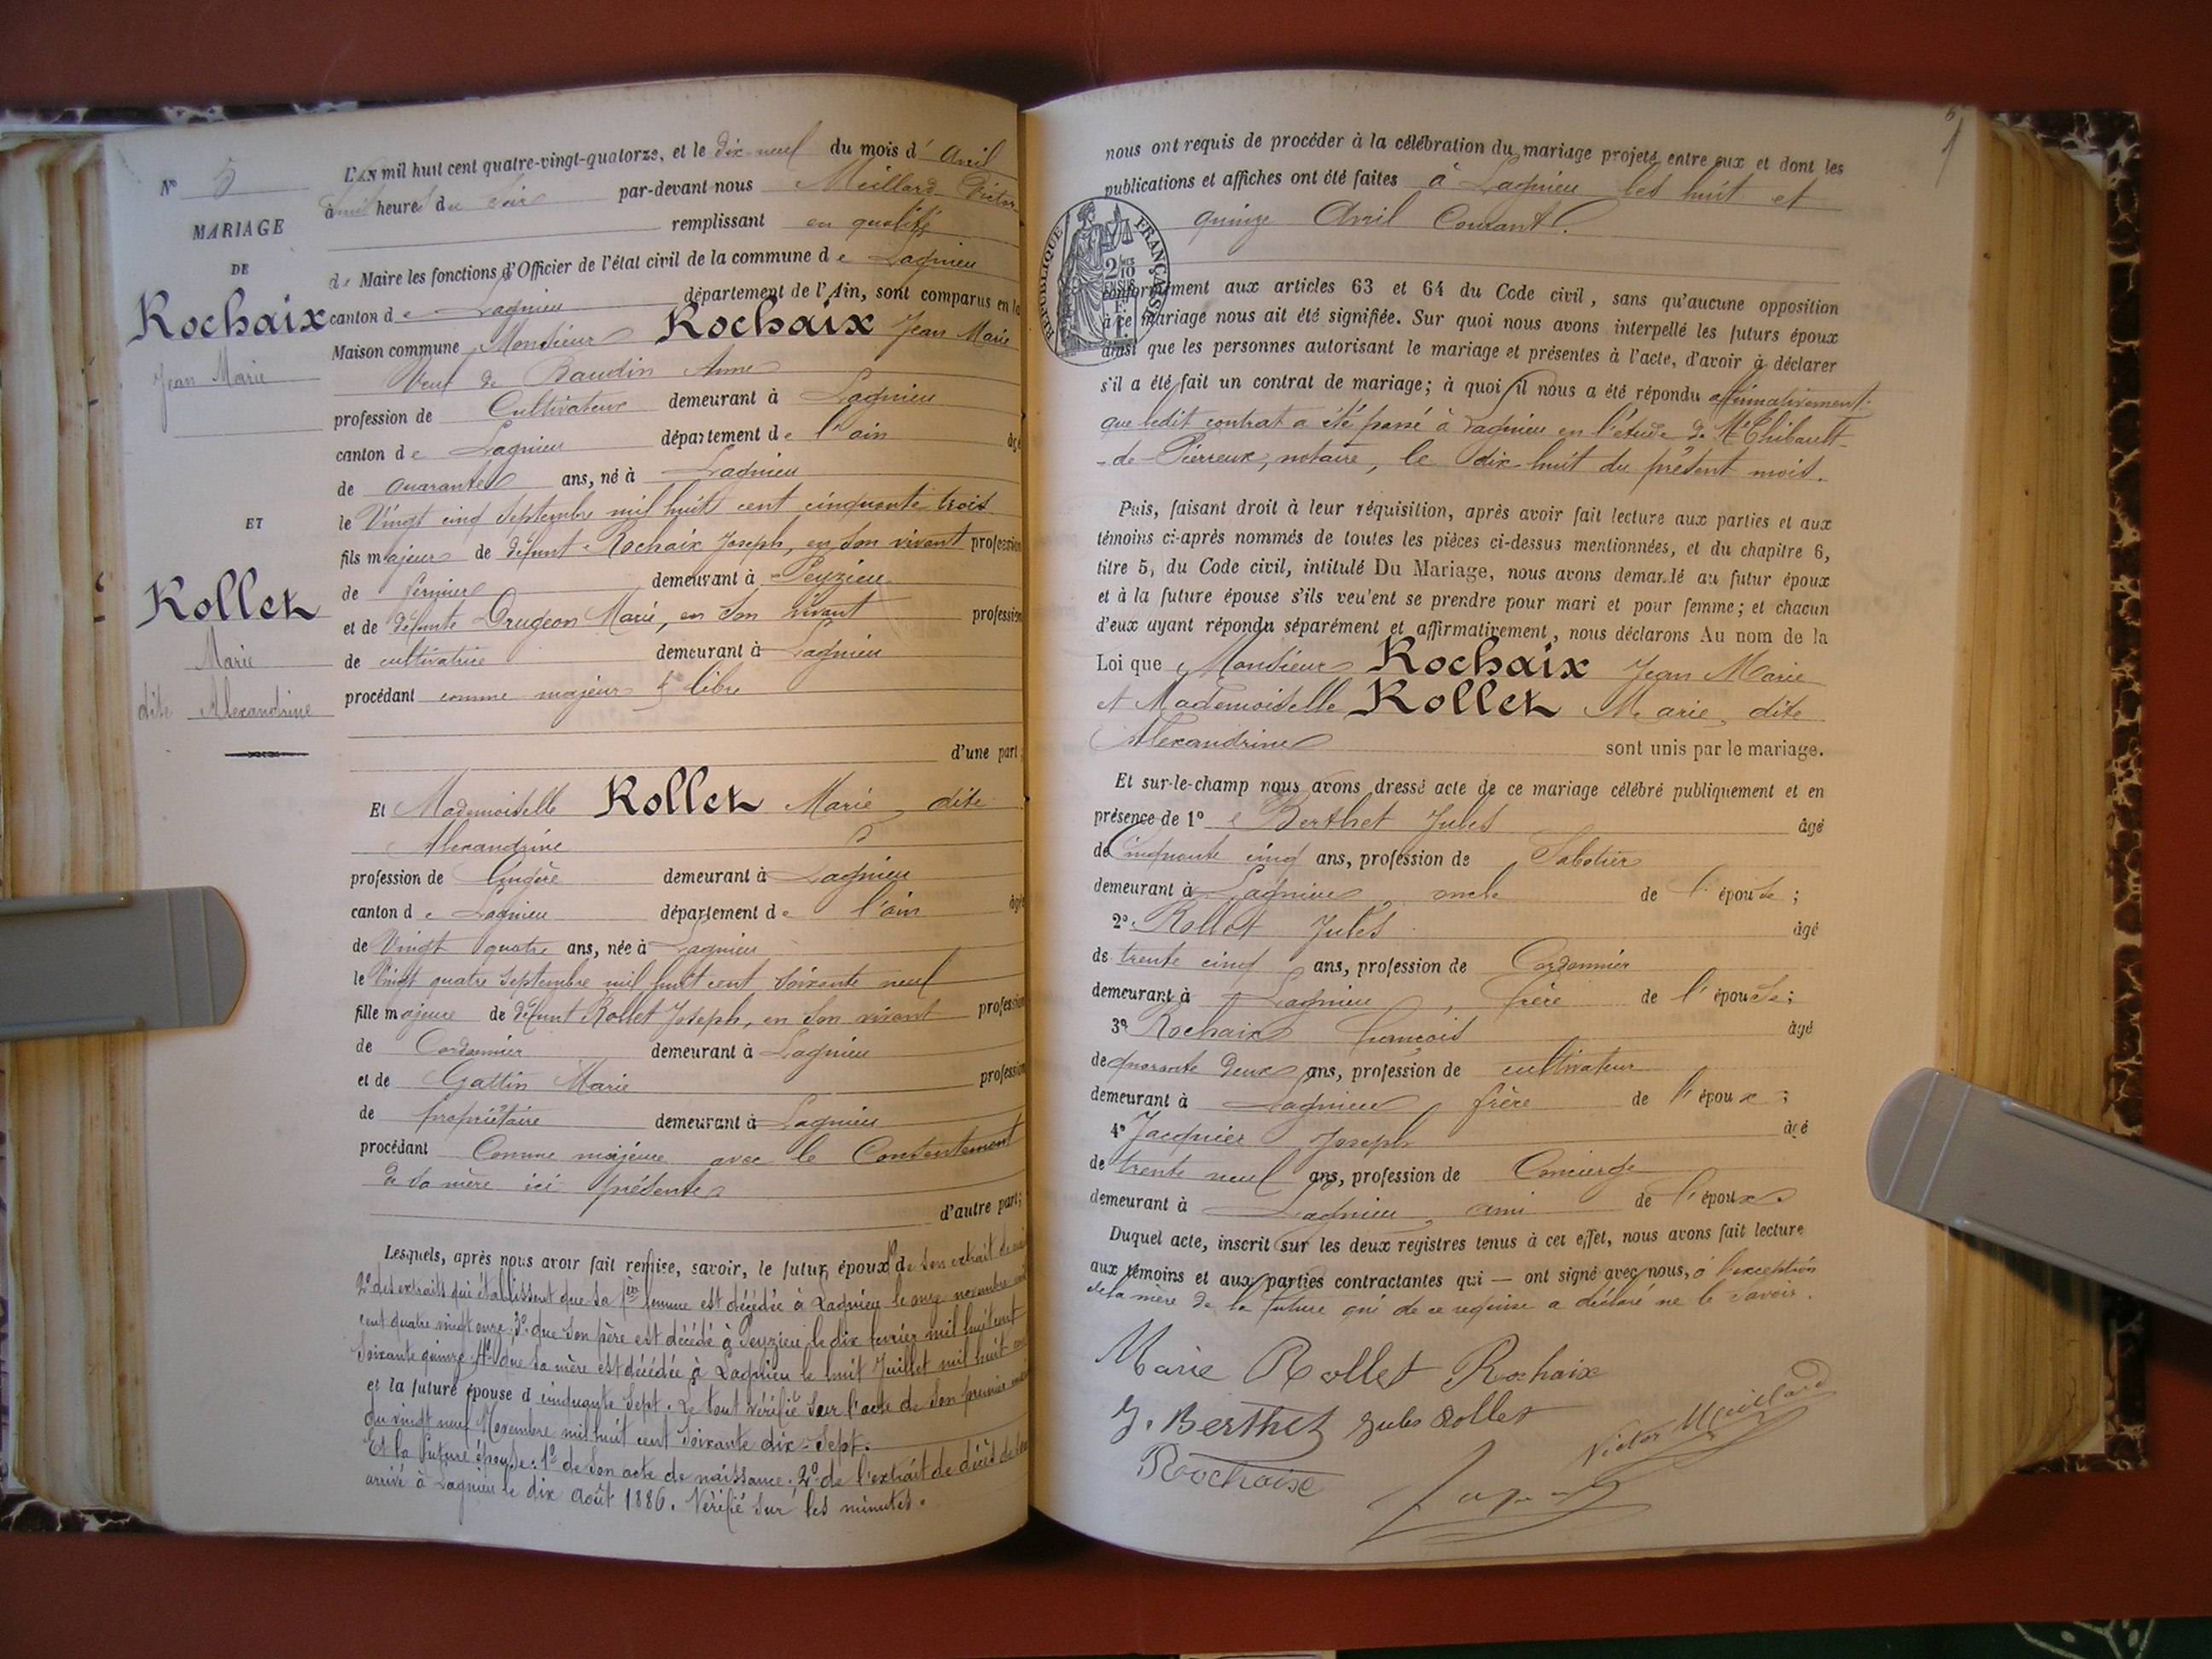 N° 5
MARIAGE
DE
Rochaix
Jean Marie
ET
Rollet
Marie
dite Alexandrine
L'An mil huit cent quatre-vingt-quatorze, et le dix-neuf du mois d'Avril
à heures du Soir par-devant nous Meillard Victor
remplissant en qualité
de Maire les fonctions d'Officier de l'état civil de la commune de Lagnieu
canton de Lagnieu département de l'Ain, sont comparus en la
Maison commune Monsieur Rochaix Jean Marie
Veuf de Baudin Anne
profession de Cultivateur demeurant à Lagnieu
canton de Lagnieu département de l'ain âgé
de quarante ans, né à Lagnieu
le Vingt cinq Septembre mil huit cent cinquante trois
fils majeur de défunt Rochaix Joseph, en son vivant profession
de fermier demeurant à Peyzieu
et de défunte Drugeon Marie, en son vivant profession
de cultivatrice demeurant à Lagnieu
procédant comme majeur & libre
d'une part;
Et Mademoiselle Rollet Marie, dite
Alexandrine
profession de Lingère demeurant à Lagnieu
canton de Lagnieu département de l'ain âgé
de Vingt quatre ans, née à Lagnieu
le Vingt quatre Septembre mil huit cent soixante neuf
fille majeure de défunt Rollet Joseph, en son vivant profession
de Cordonnier demeurant à Lagnieu
et de Gattin Marie profession
de propriétaire demeurant à Lagnieu
procédant Comme majeure avec le Consentement
de sa mère ici présente
d'autre part;
Lesquels, après nous avoir fait remise, savoir, le futur époux 1° de son extrait de
2° des extraits qui établissent que sa 1ère femme est décédée à Lagnieu le onze novembre mil
cent quatre vingt onze; 3° que son père est décédé à Peyzieu le dix février mil huit cent
soixante quinze; 4° que sa mère est décédée à Lagnieu le huit Juillet mil huit cent
et la future épouse d cinquante sept. Le tout vérifié sur l'acte de son premier
du vingt neuf Novembre mil huit cent soixante dix-sept.
Et la future épouse: 1° de son acte de naissance; 2° de l'extrait de décès de
arrivé à Lagnieu le dix Août 1886. Vérifié sur les minutes.
nous ont requis de procéder à la célébration du mariage projeté entre eux et dont les
publications et affiches ont été faites à Lagnieu les huit et
quinze Avril Courant.
RÉPUBLIQUE FRANÇAISE
conformément aux articles 63 et 64 du Code civil, sans qu'aucune opposition
à ce mariage nous ait été signifiée. Sur quoi nous avons interpellé les futurs époux
ainsi que les personnes autorisant le mariage et présentes à l'acte, d'avoir à déclarer
s'il a été fait un contrat de mariage; à quoi il nous a été répondu affirmativement
que ledit contrat a été passé à Lagnieu en l'étude de Me Thibault-
-de-Pierreux, notaire, le dix huit du présent mois.
Puis, faisant droit à leur réquisition, après avoir fait lecture aux parties et aux
témoins ci-après nommés de toutes les pièces ci-dessus mentionnées, et du chapitre 6,
titre 5, du Code civil, intitulé Du Mariage, nous avons demandé au futur époux
et à la future épouse s'ils veulent se prendre pour mari et pour femme; et chacun
d'eux ayant répondu séparément et affirmativement, nous déclarons Au nom de la
Loi que Monsieur Rochaix Jean Marie
et Mademoiselle Rollet Marie, dite
Alexandrine sont unis par le mariage.
Et sur-le-champ nous avons dressé acte de ce mariage célébré publiquement et en
présence de 1° Berthet Jules âgé
de Cinquante cinq ans, profession de Sabotier
demeurant à Lagnieu, oncle de l'épouse;
2° Rollet Jules âgé
de trente cinq ans, profession de Cordonnier
demeurant à Lagnieu, frère de l'épouse;
3° Rochaix François âgé
de quarante deux ans, profession de cultivateur
demeurant à Lagnieu frère de l'époux;
4° Jacquier Joseph âgé
de trente neuf ans, profession de Concierge
demeurant à Lagnieu, ami de l'époux.
Duquel acte, inscrit sur les deux registres tenus à cet effet, nous avons fait lecture
aux témoins et aux parties contractantes qui — ont signé avec nous, à l'exception
de la mère de la future qui de ce requise a déclaré ne le savoir.
Marie Rollet Rochaix
J. Berthet Jules Rollet Victor Meillard
Rochaix